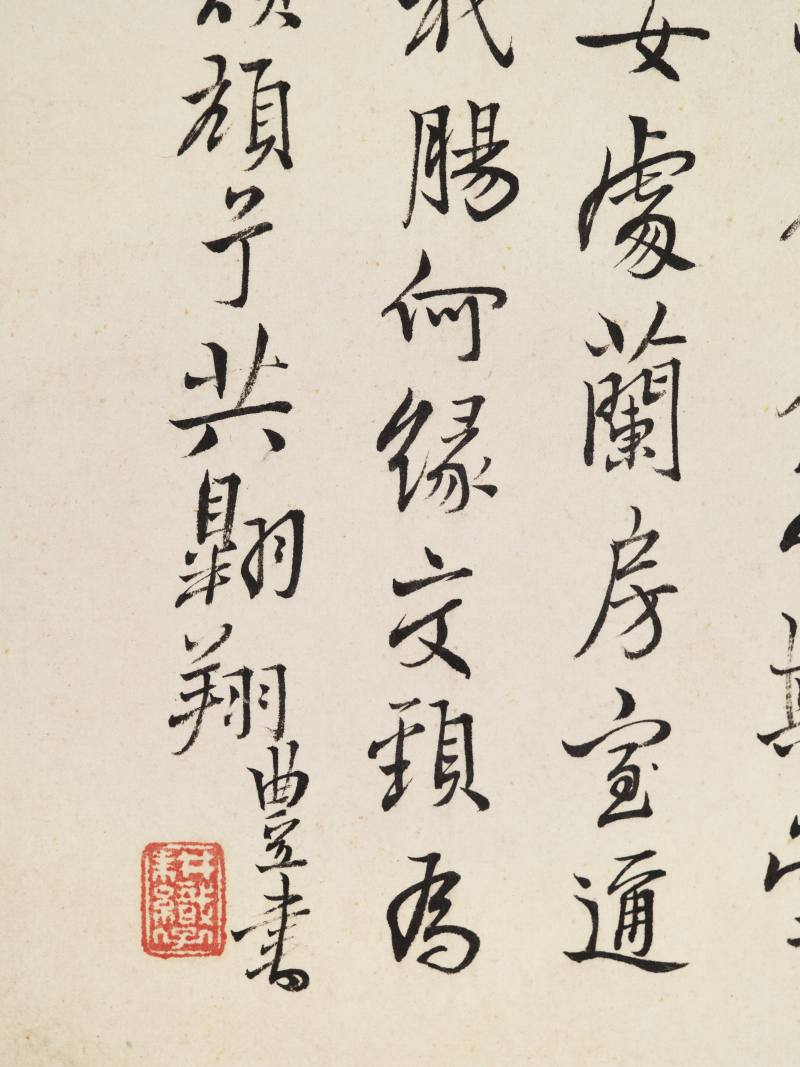 女處蘭房室邇
我腸何緣交頸為
頡頏兮共翱翔
豊書